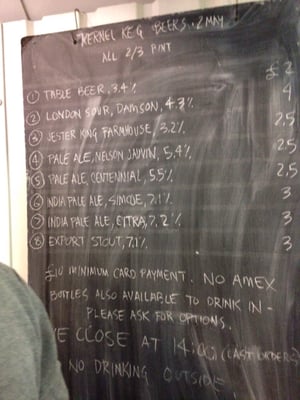 KERNEL KEG BEERS. 2 MAY
ALL 2/3 PINT
£2
① TABLE BEER, 3.4% 4
② LONDON SOUR, DAMSON, 4.3% 2,5
③ JESTER KING FARMHOUSE, 3.2% 2,5
④ PALE ALE, NELSON SAUVIN, 5.4% 2,5
⑤ PALE ALE, CENTENNIAL, 5.5% 3
⑥ INDIA PALE ALE, SIMCOE, 7.1% 3
⑦ INDIA PALE ALE, CITRA, 7.2% 3
⑧ EXPORT STOUT, 7.1%
£10 MINIMUM CARD PAYMENT. NO AMEX
BOTTLES ALSO AVAILABLE TO DRINK IN -
PLEASE ASK FOR OPTIONS.
WE CLOSE AT 14:00 (LAST ORDERS)
NO DRINKING OUTSIDE